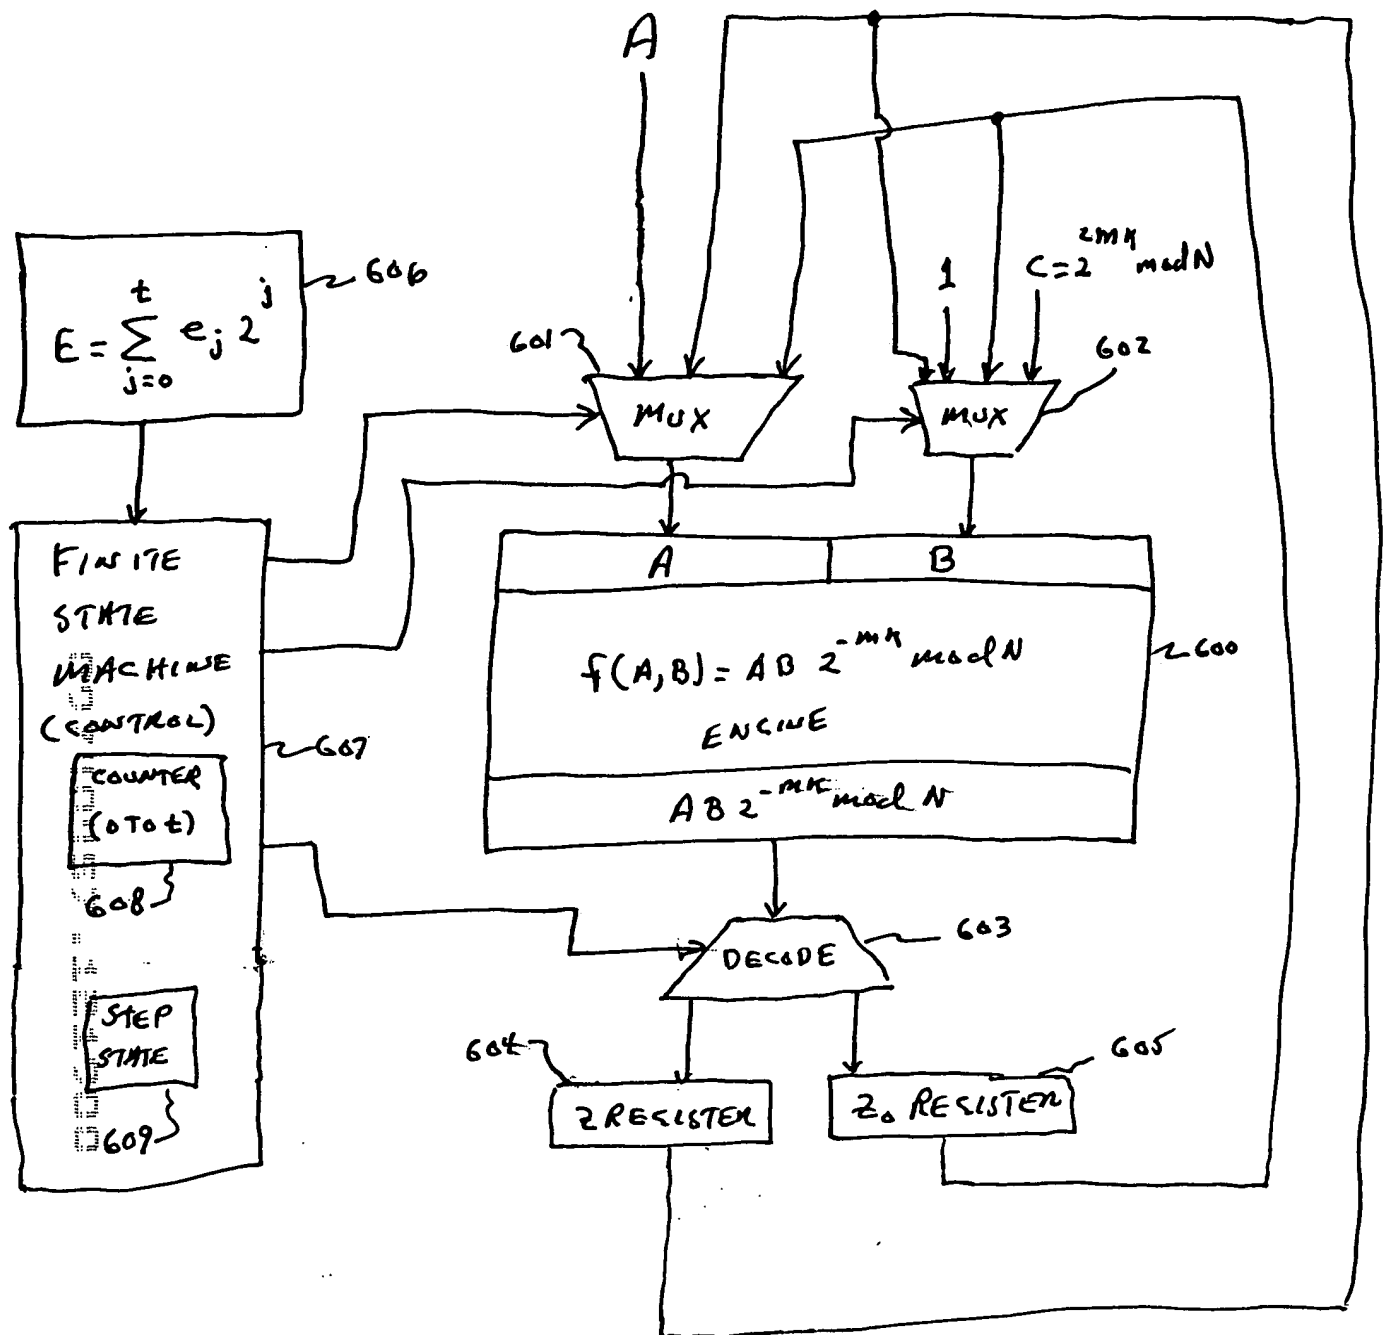 A
E = t∑j=0 e_j 2^j
606
1
C = 2^{2mk} mod N
601
602
MUX
MUX
FINITE
STATE
MACHINE
(CONTROL)
607
COUNTER
(0 TO t)
608
STEP
STATE
609
A
B
f(A,B) = AB 2^{-mk} mod N
ENGINE
600
AB 2^{-mk} mod N
DECODE
603
604
605
Z REGISTER
Z_0 REGISTER